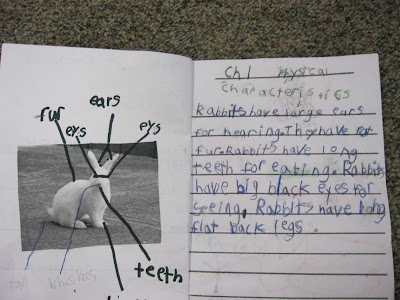 fur
ears
eys
eys
tail
whiskers
teeth
Ch 1 Physical
Characteristics
Rabbits have large ears
for hearing. They have
fur. Rabbits have long
teeth for eating. Rabbits
have big black eyes for
seeing. Rabbits have long
flat back legs.